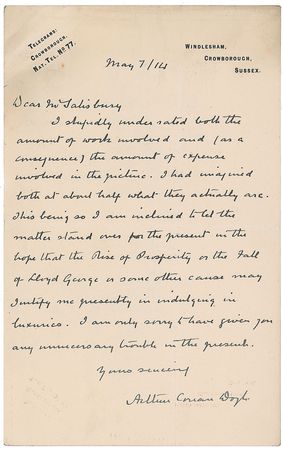 TELEGRAMS:
CROWBOROUGH.
NAT. TEL. NO. 77.
WINDLESHAM,
CROWBOROUGH,
SUSSEX.
May 7/14
Dear Mr Salisbury
I stupidly under rated both the
amount of work involved and (as a
consequence) the amount of expense
involved in the picture. I had imagined
both at about half what they actually are.
This being so I am inclined to let the
matter stand over for the present in the
hope that the Rise of Prosperity or the Fall
of Lloyd George or some other cause may
justify me presently in indulging in
luxuries. I am only sorry to have given you
any unnecessary trouble in the present.
Yours sincerely
Arthur Conan Doyle